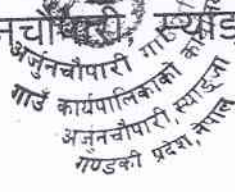 नचौपारी, स्याङ
अर्जुनचौपारी गा
गाउँ कार्यपालिकाको का
अर्जुनचौपारी, स्याङ्जा
गण्डकी प्रदेश, नेपाल